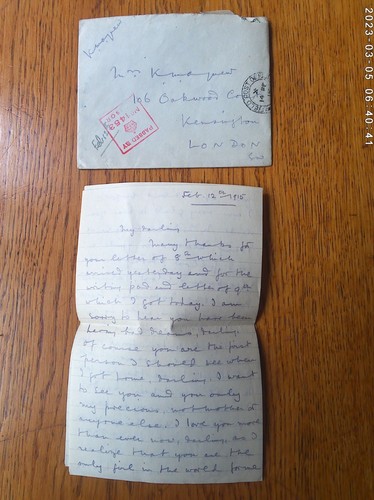 2023-03-05 06:40:41
106 Oakwood Co
Kensington
LONDON
SW
PASSED BY
No 1453
FIELD POST OFFICE
Feb 12th 1915
My darling
Many thanks for
your letter of 8th which
arrived yesterday and for the
writing pad and letter of 9th
which I got today. I am
sorry to hear you have been
having bad dreams, darling,
of course you are the first
person I should see when
I got home, darling. I want
to see you and you only
my precious, not mother or
anyone else. I love you more
than ever now, darling, as I
realize that you are the
only girl in the world for me